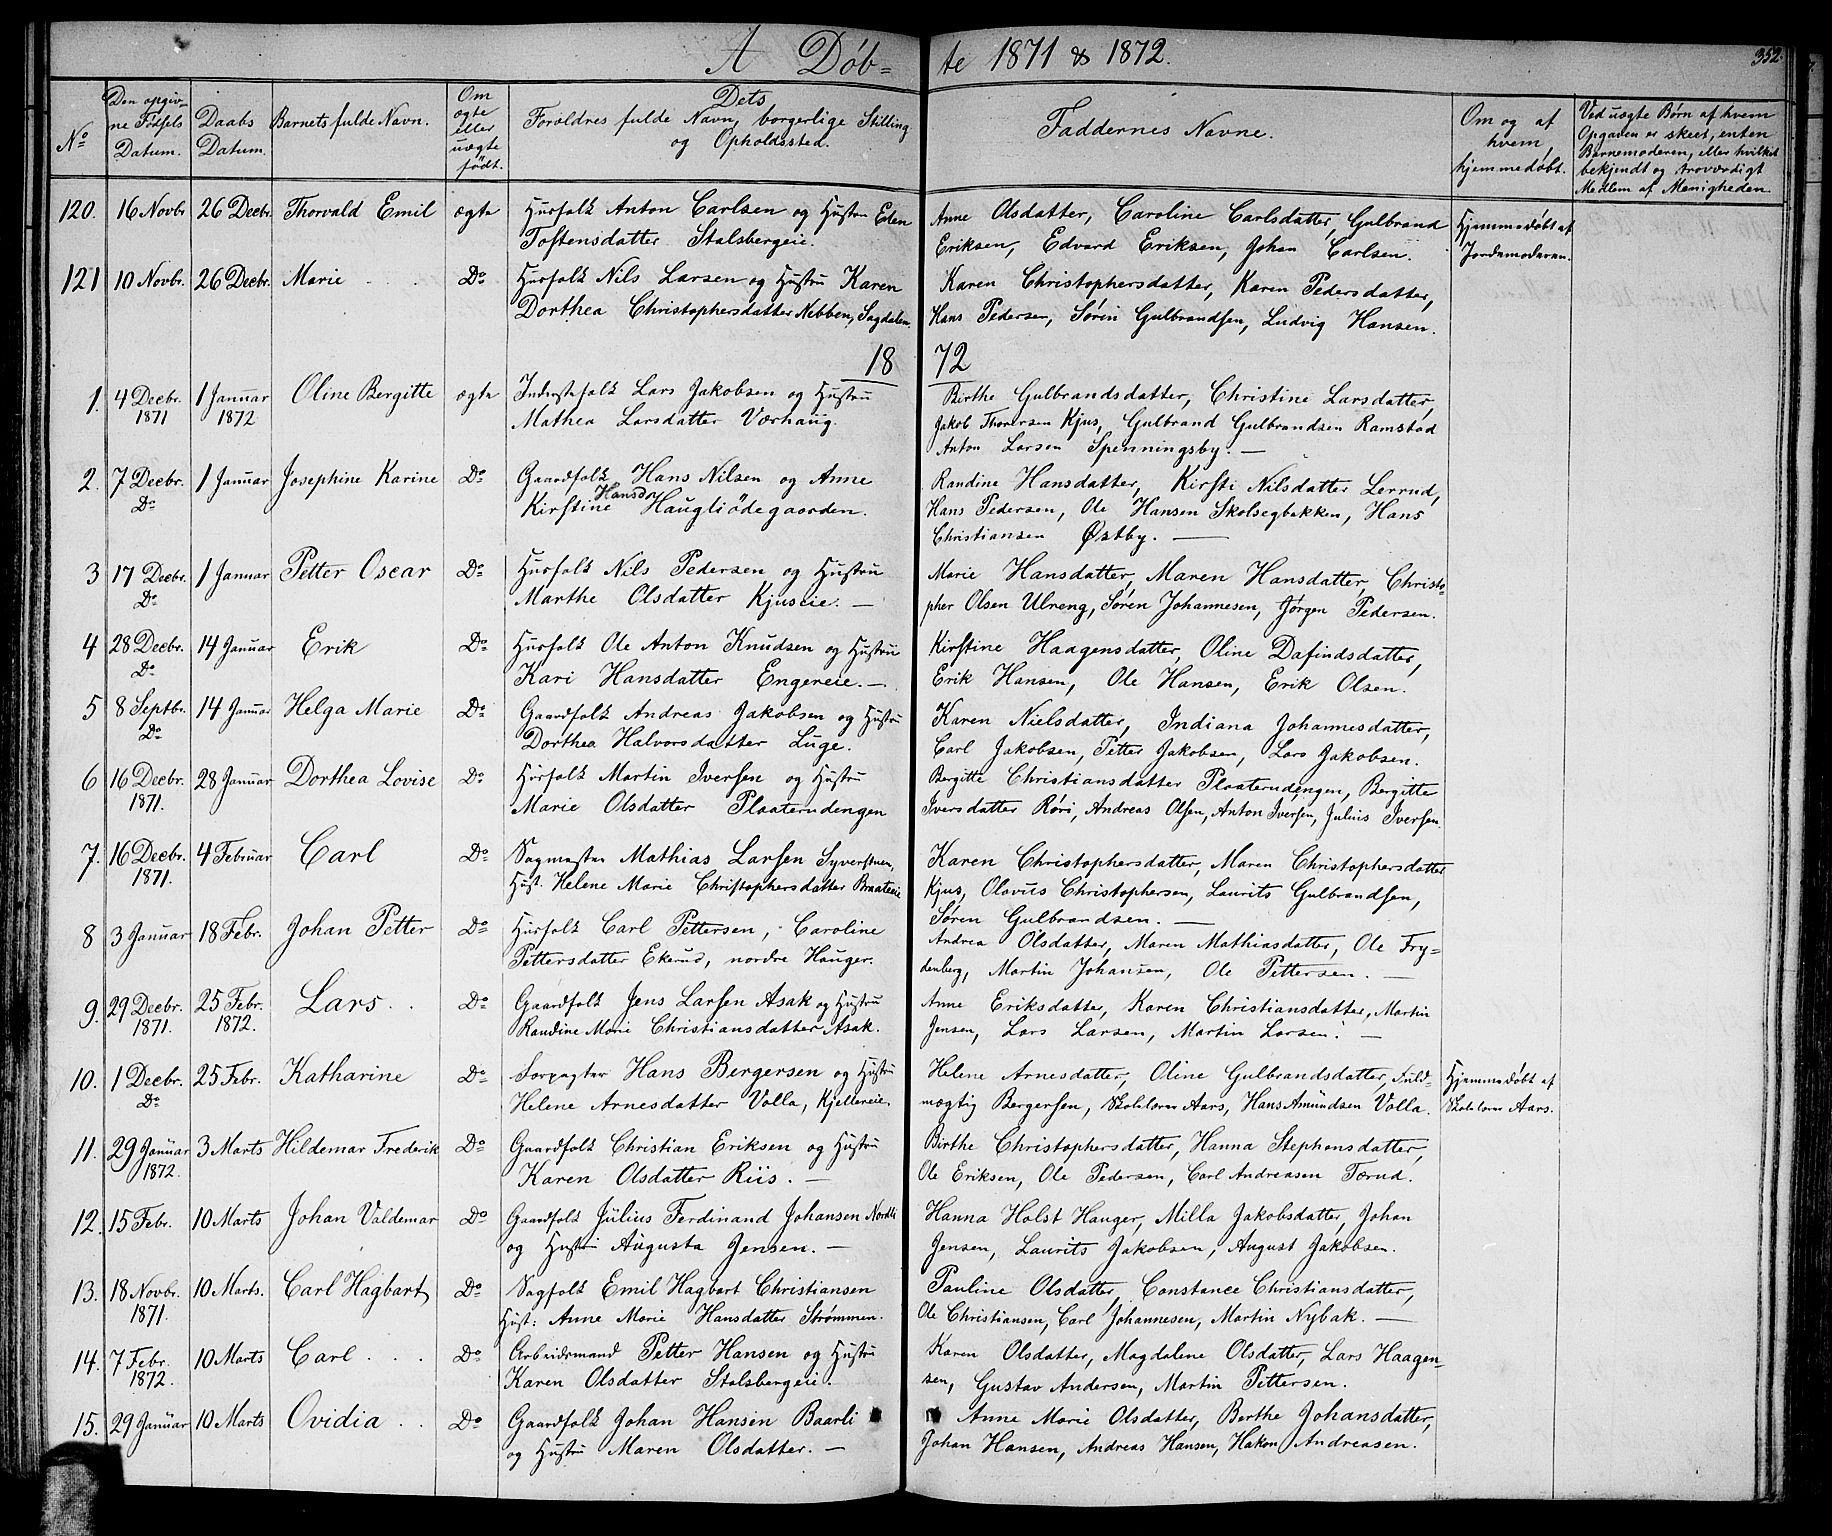 A Døb- te 1871 & 1872.
352.
No
Den opgiv-
ne Fødsels
Datum.
Daabs
Datum.
Barnets fulde Navn.
Om
ægte
eller
uægte
født.
Dets
Forældres fulde Navn, borgerlige Stilling
og Opholdssted.
Faddernes Navne.
Om og af
hvem
hjemmedøbt.
Ved uægte Børn af hvem
Opgaven er skeet, enten
Barnemoderen, eller hvilket
bekjendt og troværdigt
Medlem af Menigheden.
120. 16 Novbr 26 Decbr. Thorvald Emil ægte Husfolk Anton Carlsen og Hustru Eden Anne Olsdatter, Caroline Carlsdatter, Gulbrand Hjemmedøbt af
Tostensdatter Stalsbergeie. Eriksen, Edvard Eriksen, Johan Carlsen. Jordemoderen.
121 10 Novbr. 26 Decbr. Marie Do Husfolk Nils Larsen og Hustru Karen Karen Christophersdatter, Karen Pedersdatter,
Dorthea Christophersdatter Nebben, Sagdalen Hans Pedersen, Søren Gulbrandsen, Ludvig Hansen.
18 72
1. 4 Decbr. 1 Januar Oline Bergitte ægte Inderstfolk Lars Jakobsen og Hustru Birthe Gulbrandsdatter, Christine Larsdatter,
1871 1872 Mathea Larsdatter Værhaug. Jakob Thorersen Kjus, Gulbrand Gulbrandsen Ramstad
Anton Larsen Spenningsby. —
2. 7 Decbr. 1 Januar Josephine Karine Do Gaardfolk Hans Nilsen og Anne Randine Hansdatter, Kirsti Nilsdatter Lerrud,
Do Kirstine Hansdr Haugliødegaarden. Hans Pedersen, Ole Hansen Skolsegbakken, Hans
Christiansen Østby. —
3 17 Decbr. 1 Januar Petter Oscar Do Husfolk Nils Pedersen og Hustru Marie Hansdatter, Maren Hansdatter, Christo-
Do Marthe Olsdatter Kjuseie. — pher Olsen Ulreng, Søren Johannesen, Jørgen Pedersen.
4 28 Decbr. 14 Januar Erik Do Husfolk Ole Anton Knudsen og Hustru Kirstine Haagensdatter, Oline Dafindsdatter,
Do Kari Hansdatter Engereie. — Erik Hansen, Ole Hansen, Erik Olsen.
5 8 Septbr. 14 Januar Helga Marie Do Gaardfolk Andreas Jakobsen og Hustru Karen Nielsdatter, Indiana Johannesdatter,
Do Dorthea Halvorsdatter Luge. Carl Jakobsen, Petter Jakobsen, Lars Jakobsen.
6 16 Decbr. 28 Januar Dorthea Lovise Do Husfolk Martin Iversen og Hustru Bergitte Christiansdatter Plaaterudengen, Bergitte
1871. Marie Olsdatter Plaaterudengen Iversdatter Røri, Andreas Olsen, Anton Iversen, Julius Iversen.
7. 16 Decbr. 4 Februar Carl Do Sagmester Mathias Larsen Syverstuen, Karen Christophersdatter, Maren Christophersdatter
1871. Hust. Helene Marie Christophersdatter Braateeie Kjus, Olavus Christophersen, Laurits Gulbrandsen,
Søren Gulbrandsen. —
8 3 Januar 18 Febr. Johan Petter Do Husfolk Carl Pettersen, Caroline Andrea Olsdatter, Maren Mathiasdatter, Ole Fry-
Pettersdatter Ekerud, nordre Hauger. denberg, Martin Johansen, Ole Pettersen. —
9. 29 Decbr. 25 Febr. Lars Do Gaardfolk Jens Larsen Asak og Hustru Anne Eriksdatter, Karen Christiansdatter, Martin
1871. 1872. Randine Marie Christiansdatter Asak. Jensen, Lars Larsen, Martin Larsen. —
10. 1 Decbr. 25 Febr. Katharine Do Forpagter Hans Bergersen og Hustru Helene Arnesdatter, Oline Gulbrandsdatter, Fuld- Hjemmedøbt af
Do Helene Arnesdatter Volla, Kjellereie. mægtig Bergersen, Skolelærer Aars, Hans Amundsen Volla. Skolelærer Aars.
11. 29 Januar 3 Marts Hildemar Frederik Do Gaardfolk Christian Eriksen og Hustru Birthe Christophersdatter, Hanna Stephensdatter,
1872. Karen Olsdatter Riis. — Ole Eriksen, Ole Pedersen, Carl Andreasen Torud.
12. 15 Febr. 10 Marts Johan Valdemar Do Gaardfolk Julius Ferdinand Johansen Nordli Hanna Holst Hauger, Milla Jakobsdatter, Johan
og Hustru Augusta Jensen. — Jensen, Laurits Jakobsen, August Jakobsen.
13. 18 Novbr. 10 Marts. Carl Hagbart Do Sagfolk Emil Hagbart Christiansen Pauline Olsdatter, Constance Christiansdatter,
1871. Hust: Anne Marie Hansdatter Strømmen. Ole Christiansen, Carl Johannesen, Martin Nybak. —
14. 7 Febr. 10 Marts Carl Do Arbeidsmand Petter Hansen og Hustru Karen Olsdatter, Magdalene Olsdatter, Lars Haagen-
1872. Karen Olsdatter Stalsbergeie. sen, Gustav Andersen, Martin Pettersen.
15. 29 Januar 10 Marts Ovidia Do Gaardfolk Johan Hansen Baarli Anne Marie Olsdatter, Berthe Johansdatter,
og Hustru Maren Olsdatter. — Johan Hansen, Andreas Hansen, Hakon Andreasen.